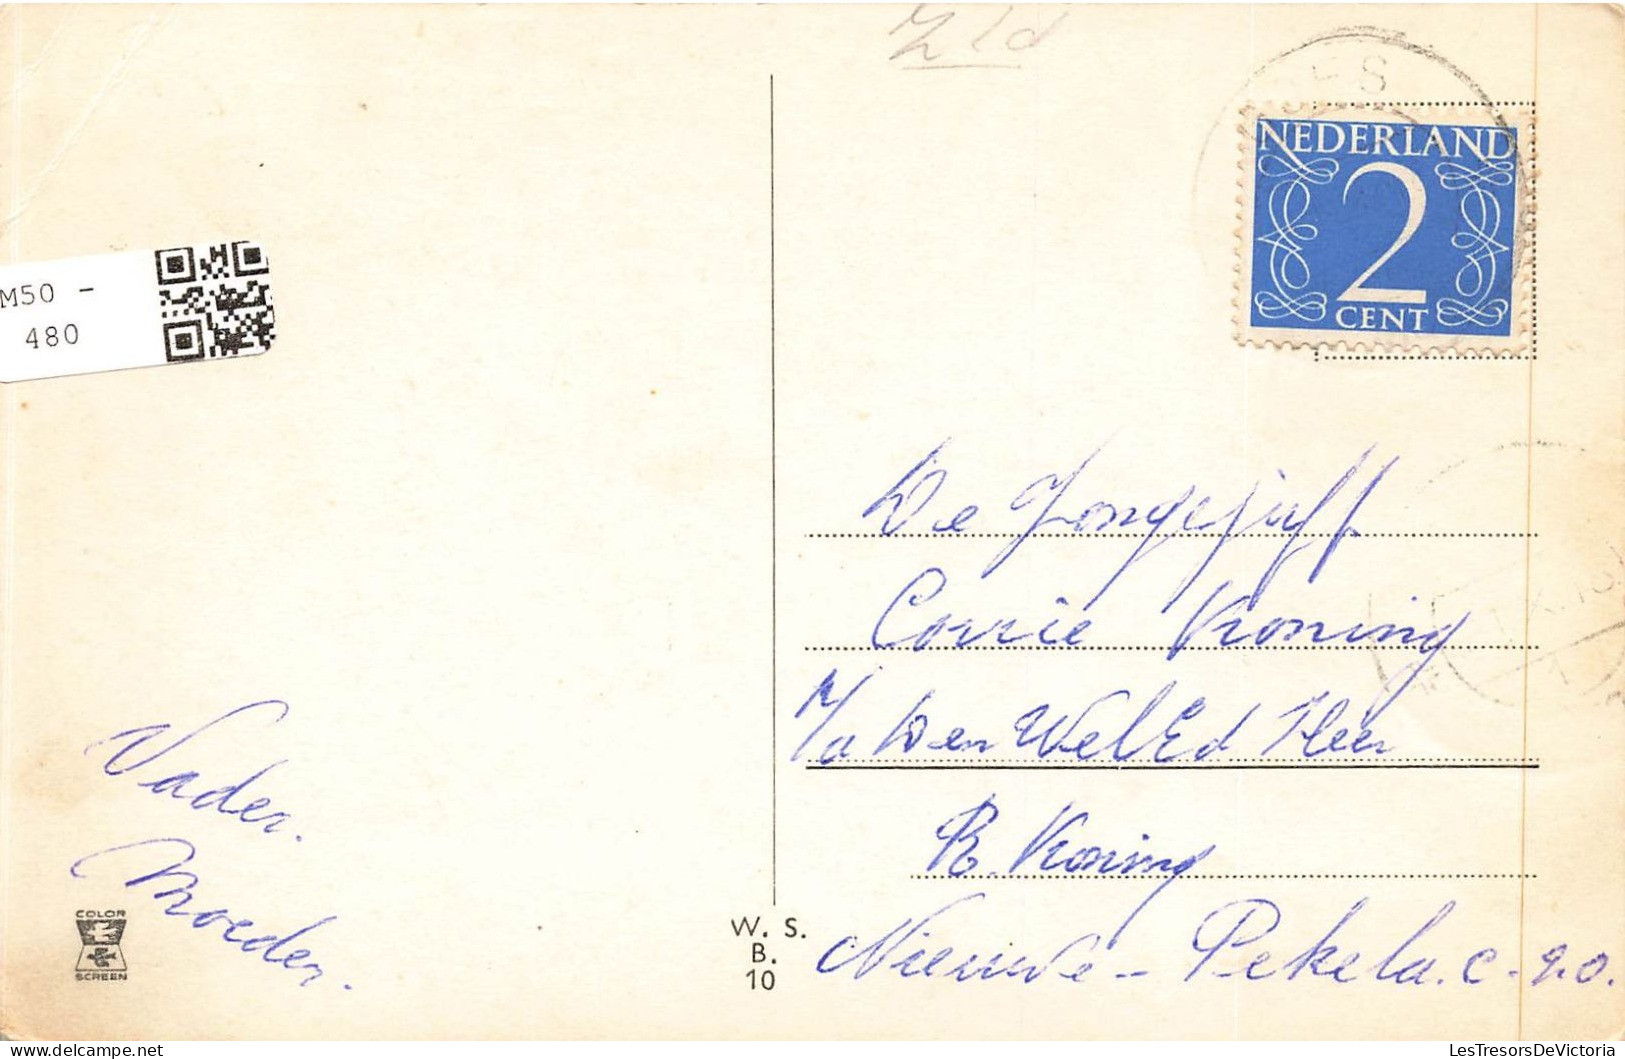 M50 -
480
NEDERLAND
2
CENT
De Jongejuff
Corrie Koning
p/a Den WelEd Heer
R. Koning
Nieuwe - Pekela. C. 90.
Vader.
Moeder.
COLOR
SCREEN
W. S.
B.
10
LesTresorsDeVictoria